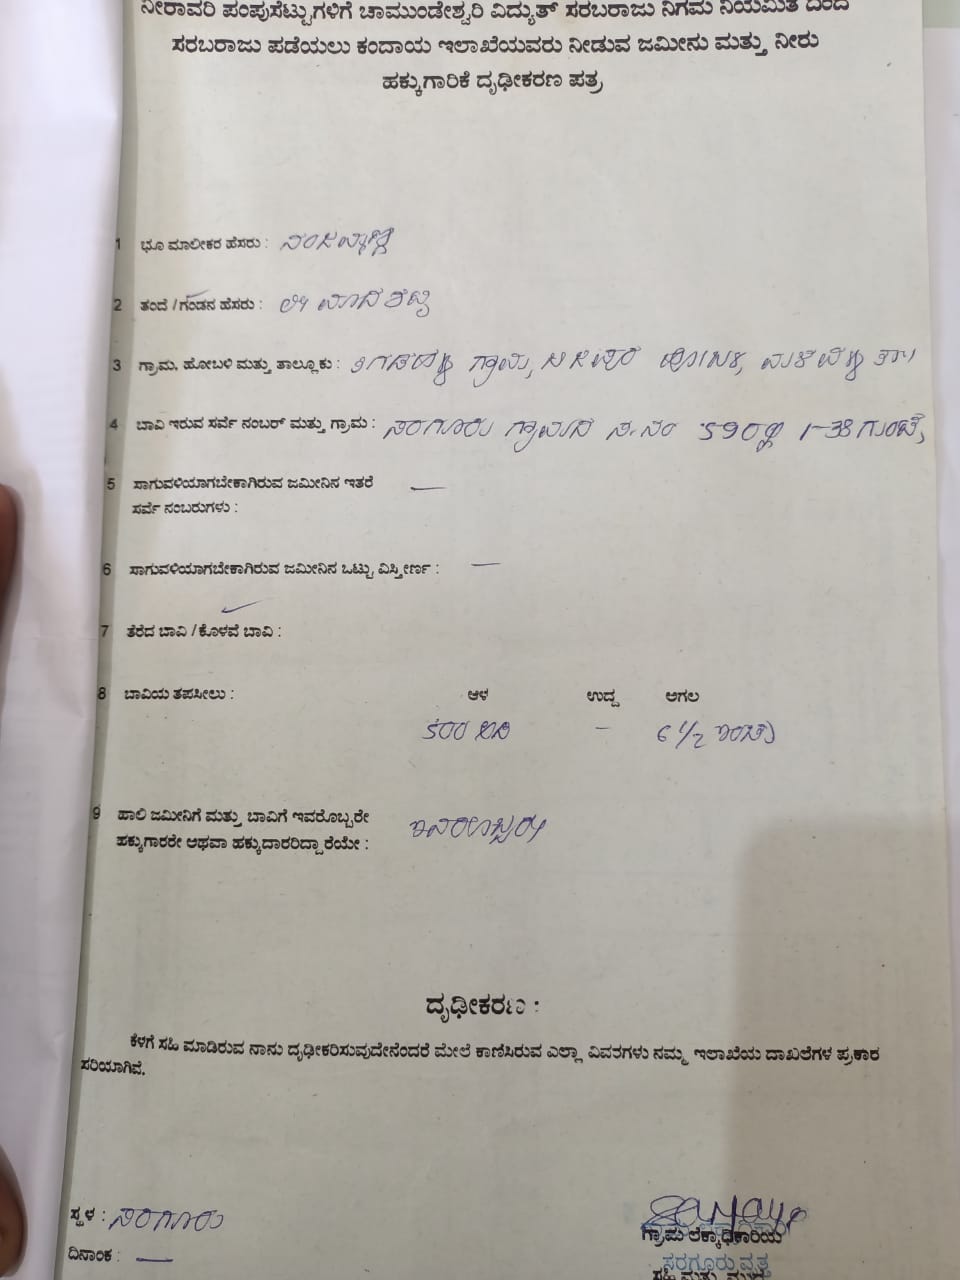 ನೀರಾವರಿ ಪಂಪುಸೆಟ್ಟುಗಳಿಗೆ ಚಾಮುಂಡೇಶ್ವರಿ ವಿದ್ಯುತ್ ಸರಬರಾಜು ನಿಗಮ ನಿಯಮಿತ ದಿಂದ
ಸರಬರಾಜು ಪಡೆಯಲು ಕಂದಾಯ ಇಲಾಖೆಯವರು ನೀಡುವ ಜಮೀನು ಮತ್ತು ನೀರು
ಹಕ್ಕುಗಾರಿಕೆ ದೃಢೀಕರಣ ಪತ್ರ
1 ಭೂ ಮಾಲೀಕರ ಹೆಸರು :
2 ತಂದೆ / ಗಂಡನ ಹೆಸರು : ಮಾದಶೆಟ್ಟಿ
3 ಗ್ರಾಮ, ಹೋಬಳಿ ಮತ್ತು ತಾಲ್ಲೂಕು : ಗ್ರಾಮ, ಹೋಬಳಿ, ತಾ॥
4 ಬಾವಿ ಇರುವ ಸರ್ವೆ ನಂಬರ್ ಮತ್ತು ಗ್ರಾಮ : ಸರಗೂರು ಗ್ರಾಮದ ಸ.ನಂ 590ರಲ್ಲಿ 1-38 ಗುಂಟೆ,
5 ಸಾಗುವಳಿಯಾಗಬೇಕಾಗಿರುವ ಜಮೀನಿನ ಇತರೆ —
ಸರ್ವೆ ನಂಬರುಗಳು :
6 ಸಾಗುವಳಿಯಾಗಬೇಕಾಗಿರುವ ಜಮೀನಿನ ಒಟ್ಟು ವಿಸ್ತೀರ್ಣ : —
7 ತೆರೆದ ಬಾವಿ / ಕೊಳವೆ ಬಾವಿ :
8 ಬಾವಿಯ ತಪಸೀಲು : ಆಳ ಉದ್ದ ಅಗಲ
500 ಅಡಿ – 6 1/2 ಇಂಚು
9 ಹಾಲಿ ಜಮೀನಿಗೆ ಮತ್ತು ಬಾವಿಗೆ ಇವರೊಬ್ಬರೇ
ಹಕ್ಕುಗಾರರೇ ಅಥವಾ ಹಕ್ಕುದಾರರಿದ್ದಾರೆಯೇ : ಇವರೊಬ್ಬರೇ
ದೃಢೀಕರಣ :
ಕೆಳಗೆ ಸಹಿ ಮಾಡಿರುವ ನಾನು ದೃಢೀಕರಿಸುವುದೇನೆಂದರೆ ಮೇಲೆ ಕಾಣಿಸಿರುವ ಎಲ್ಲಾ ವಿವರಗಳು ನಮ್ಮ ಇಲಾಖೆಯ ದಾಖಲೆಗಳ ಪ್ರಕಾರ
ಸರಿಯಾಗಿವೆ.
ಸ್ಥಳ : ಸರಗೂರು
ಗ್ರಾಮ ಲೆಕ್ಕಾಧಿಕಾರಿಯ
ದಿನಾಂಕ : —
ಸರಗೂರು ವೃತ್ತ